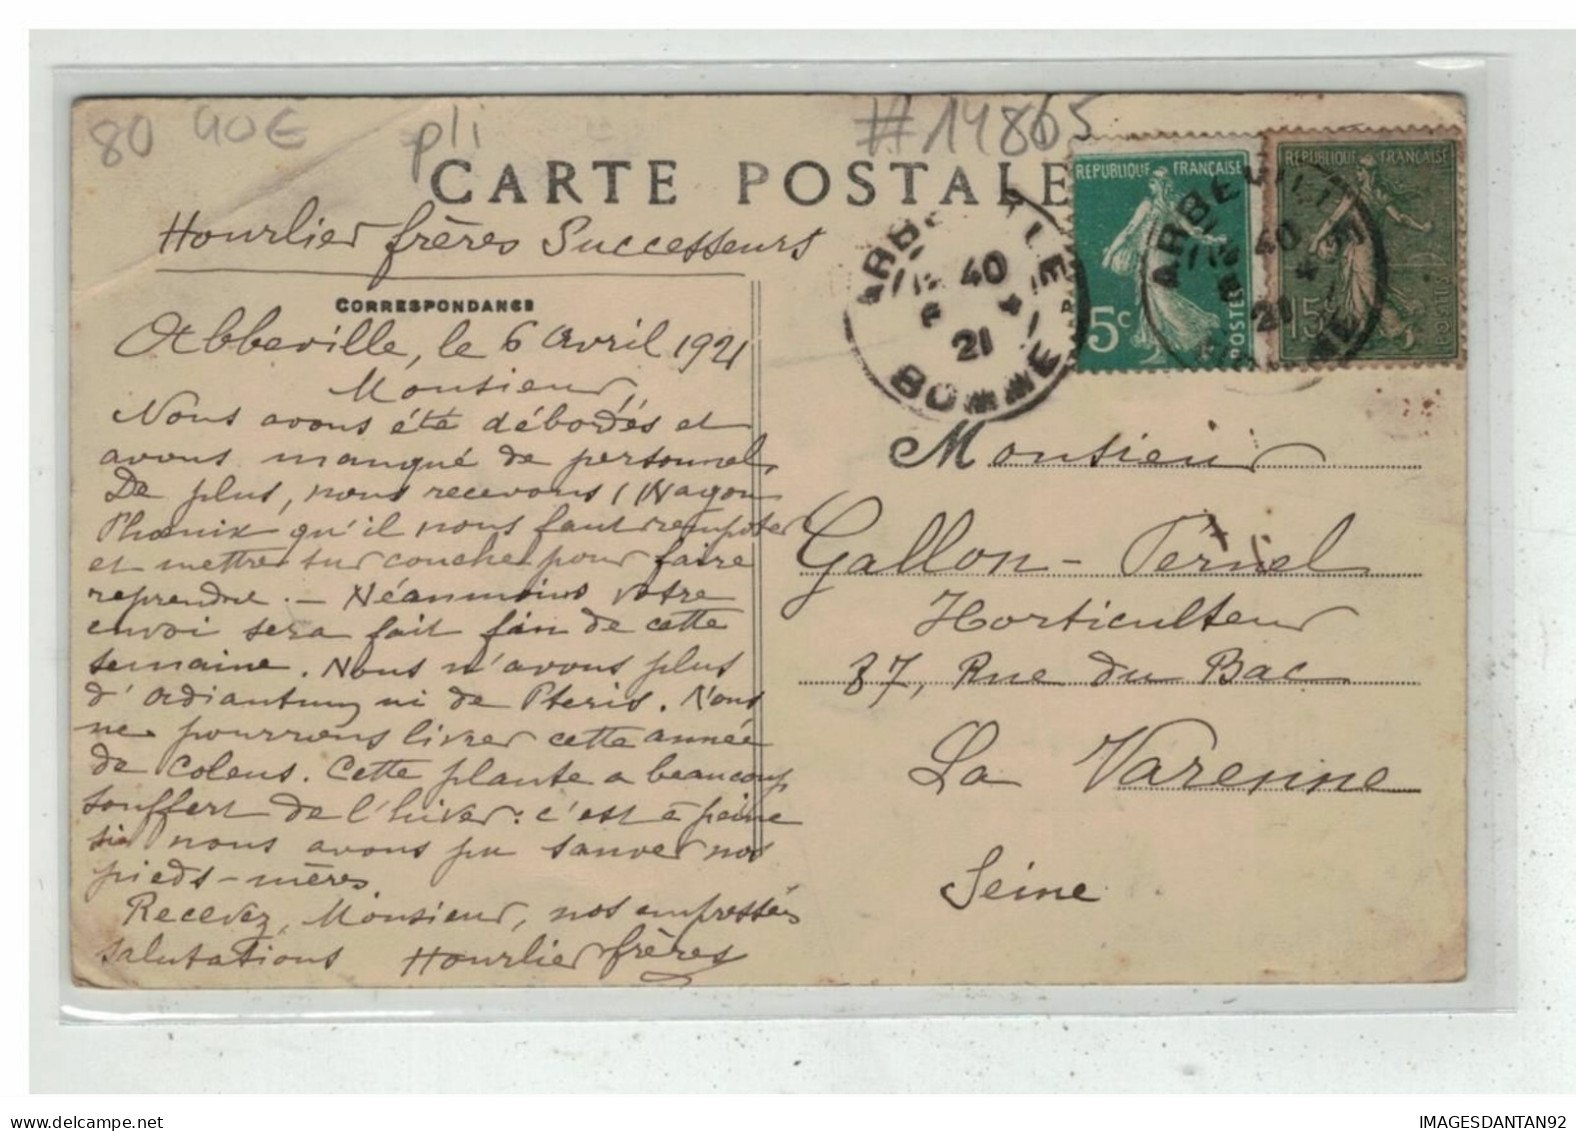 80 40€ pli #14865
CARTE POSTALE
Hourlier frères Successeurs
CORRESPONDANCE
Abbeville, le 6 avril 1921
Monsieur,
Nous avons été débordés et
avons manqué de personnel.
De plus, nous recevons 1 Wagon
Phœnix qu'il nous faut rempoter
et mettre sur couche pour faire
reprendre. — Néanmoins votre
envoi sera fait fin de cette
semaine. Nous n'avons plus
d'adiantum ni de Pteris. Nous
ne pourrons livrer cette année
de coleus. Cette plante a beaucoup
souffert de l'hiver: c'est à peine
si nous avons pu sauver nos
pieds-mères.
Recevez, Monsieur, nos empressées
salutations Hourlier frères
ABBEVILLE
40
4
21
SOMME
REPUBLIQUE FRANÇAISE
5c
POSTES
ABBEVILLE
40
4
21
SOMME
REPUBLIQUE FRANÇAISE
15c
POSTES
Monsieur
Gallon-Pernel
Horticulteur
87, Rue du Bac
La Varenne
Seine
www.delcampe.net
IMAGESDANTAN92